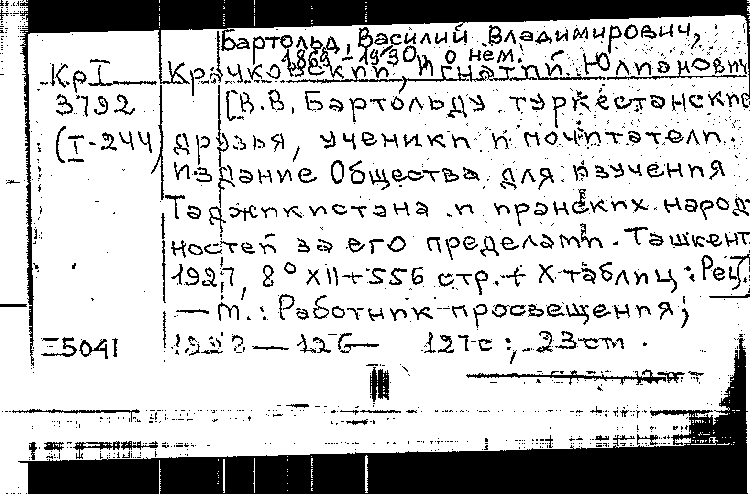 Бартольд, Василий Владимирович,
1869-1930, о нем.
КрI Крачковский, Игнатий Юлианович
3792 [В.В. Бартольду туркестанские
(I-244) друзья, ученики и почитатели.
Издание Общества для изучения
Таджикистана и иранских народ
ностей за его пределами. Ташкент
1927, 8° XII+556 стр. + X таблиц: Рец].
— М.: Работник просвещения;
Ξ5041 1928 — 126 — 127 с.; 23 cm.